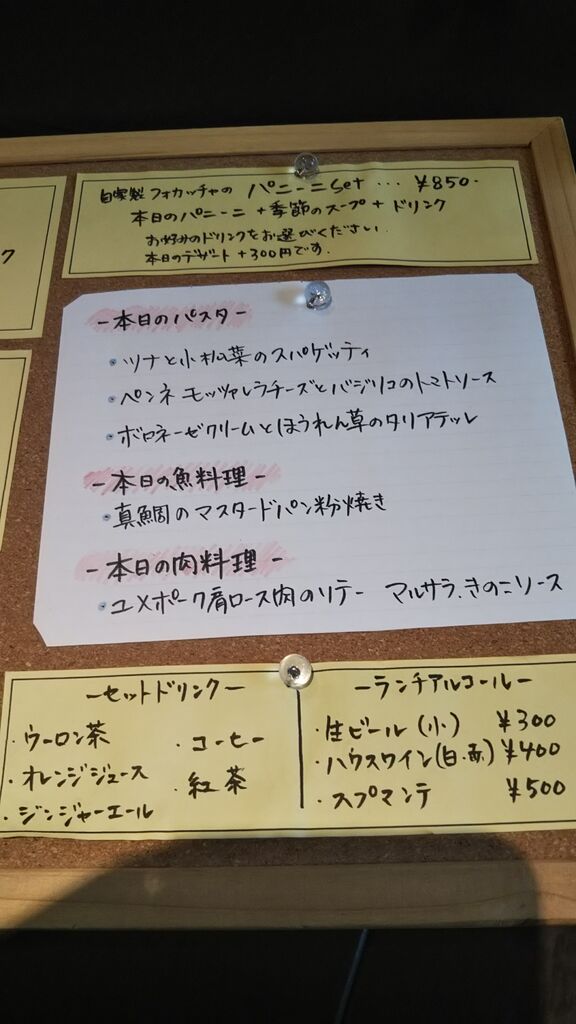 自家製フォカッチャの パニーニSet … ¥850.
本日のパニーニ + 季節のスープ + ドリンク
お好みのドリンクをお選びください.
本日のデザート +300円です.
ク
-本日のパスタ-
・ツナと小松菜のスパゲッティ
・ペンネ モッツァレラチーズとバジリコのトマトソース
・ボロネーゼクリームとほうれん草のタリアテッレ
-本日の魚料理-
・真鯛のマスタードパン粉焼き
-本日の肉料理-
・ユメポーク肩ロース肉のソテー マルサラ.きのこソース
ーセットドリンクー
・ウーロン茶
・オレンジジュース
・ジンジャーエール
・コーヒー
・紅茶
ーランチアルコールー
・生ビール (小) ¥300
・ハウスワイン(白・赤) ¥400
・スプマンテ ¥500